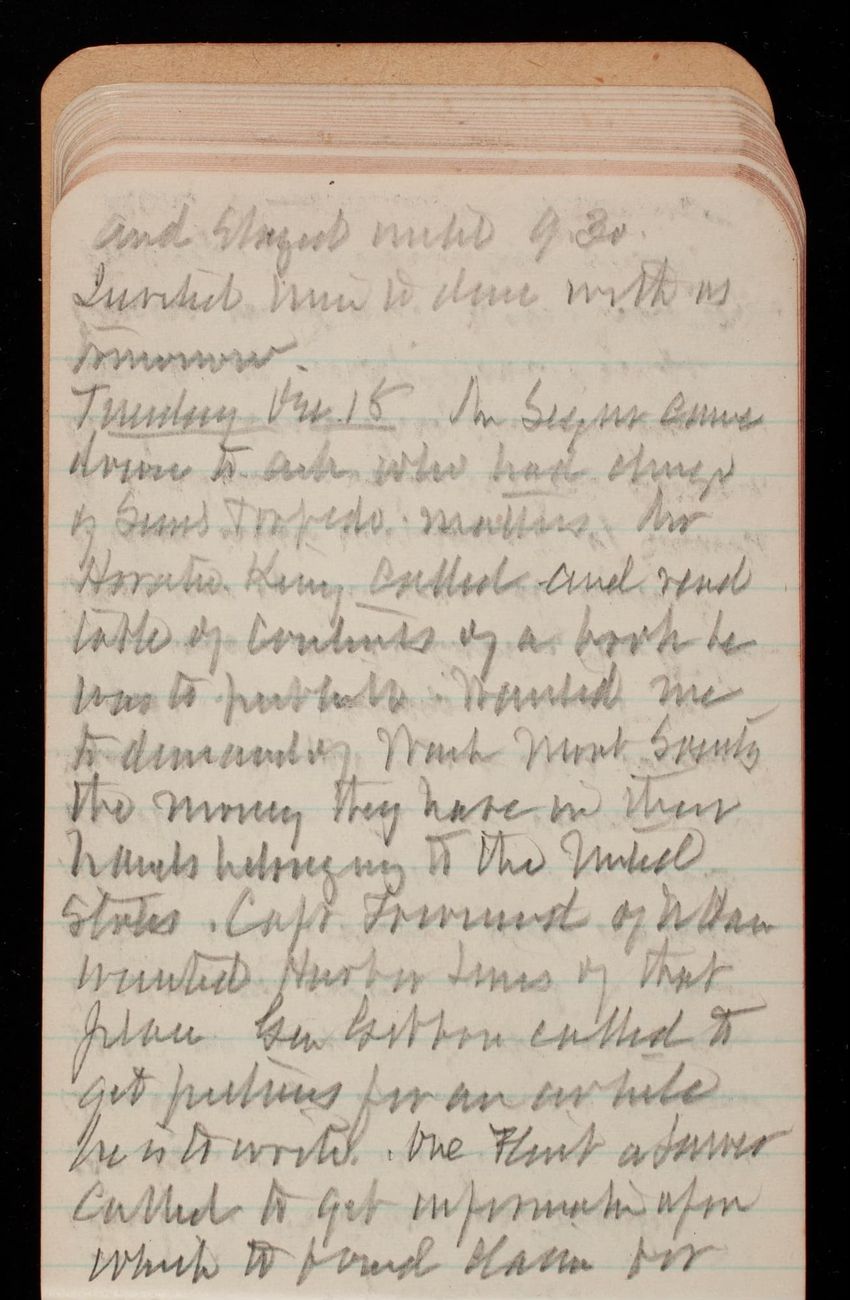 and stayed until 9.30
Invited him to dine with us
tomorrow.
Tuesday Dec. 15 Mr came
down to ask who had charge
of Sims Torpedo matters. Mr
Horatio King called and read
table of contents of a book he
was to publish. Wanted me
to demand of Wash Mont Society
the money they have in their
hands belonging to the United
States. Capt Townsend of N Haven
wanted Harbor Lines of that
place Gen Gibbon called to
get pictures for an article
he is to write. One Flint a lawyer
called to get information upon
which to found claim for